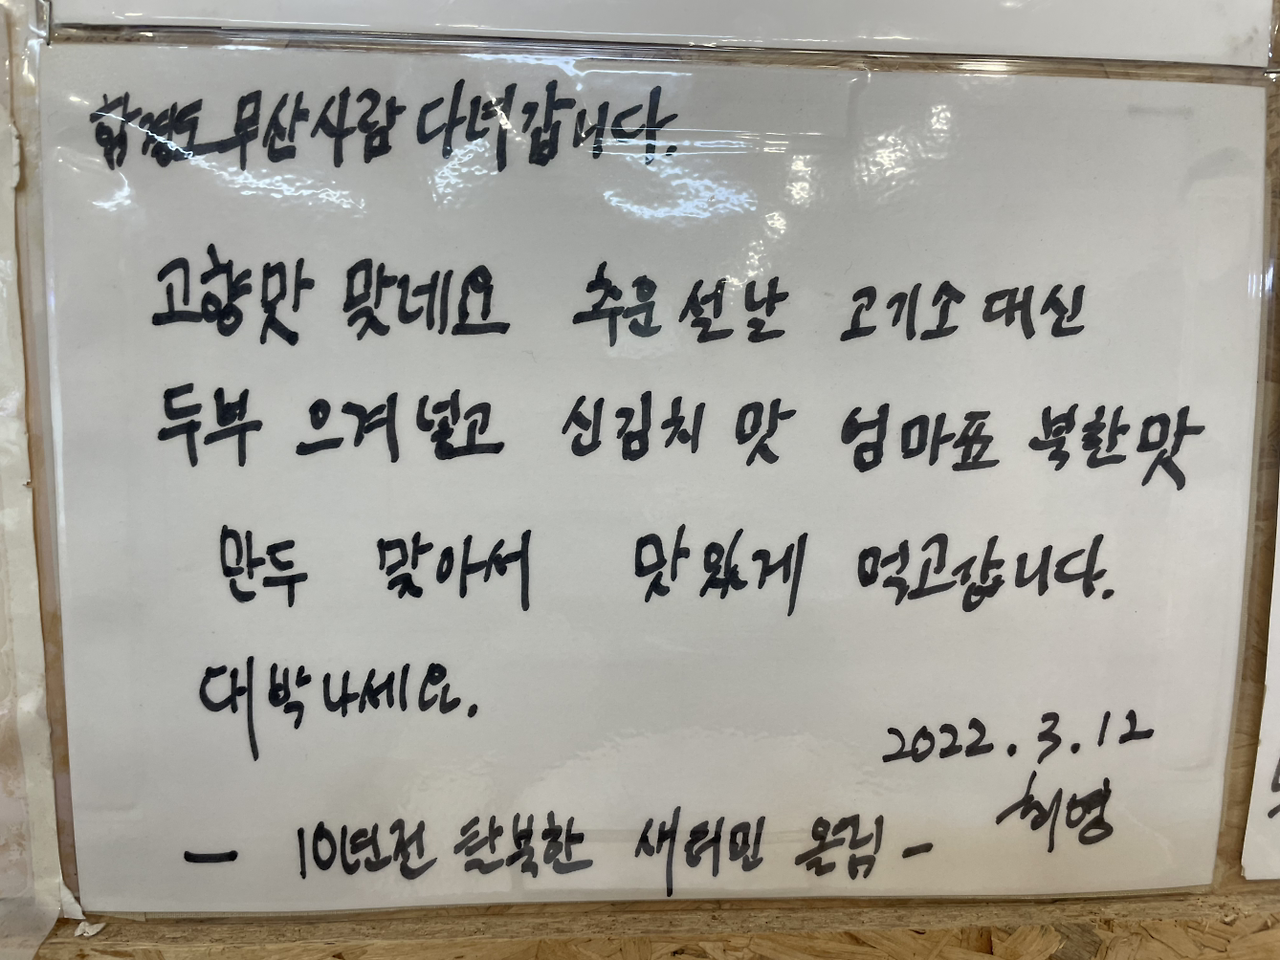 함경도 무산사람 다녀갑니다.
고향맛 맞네요 추운 설날 고기소 대신
두부 으겨 넣고 신김치 맛 엄마표 북한맛
만두 맞아서 맛있게 먹고갑니다.
대박나세요.
2022.3.12
희영
- 10년전 탈북한 새터민 올림 -